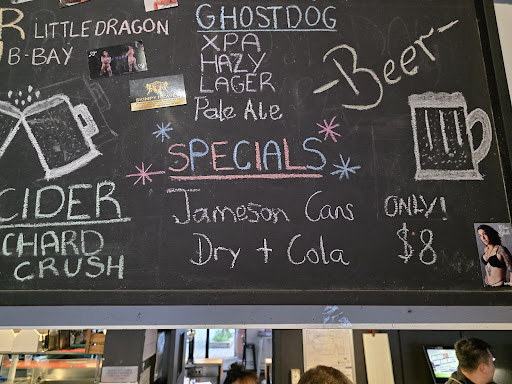 LITTLE DRAGON
B-BAY
GHOSTDOG
XPA
HAZY
LAGER
Pale Ale
-Beer-
SPECIALS
Jameson Cans ONLY!
Dry + Cola $8
CIDER
CHARD
CRUSH